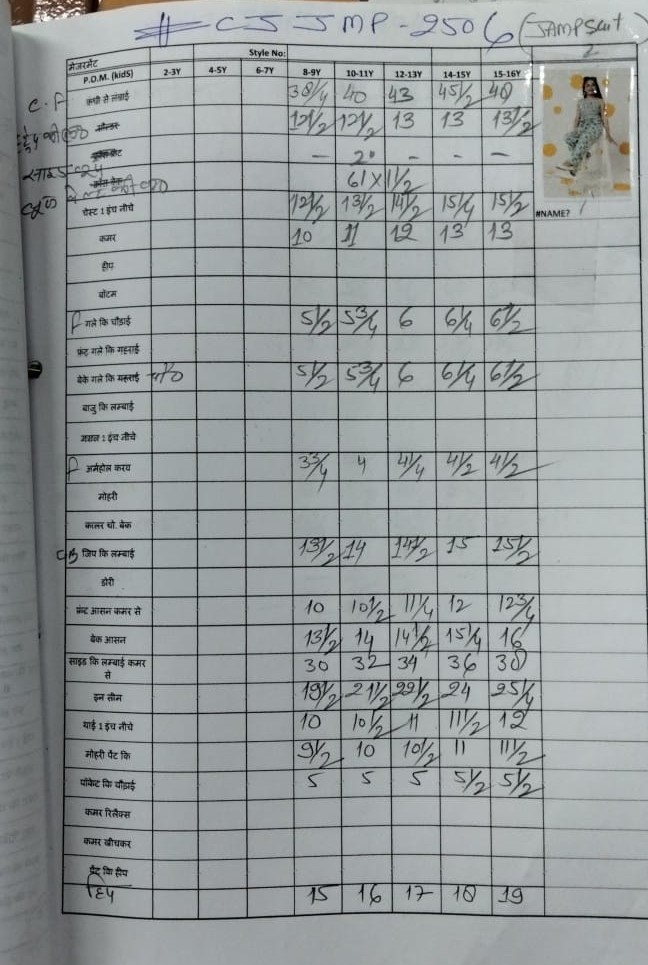 # CJJMP-2506 (JAMPSuit)
मेजरमेंट Style No:
P.O.M. (kidS) 2-3Y 4-5Y 6-7Y 8-9Y 10-11Y 12-13Y 14-15Y 15-16Y
C.F कन्धे से लंबाई 38 1/4 40 43 45 1/2 48
12 1/2 12 1/2 13 13 13 1/2
- 2" - - -
61 X 1 1/2
चेस्ट 1 इंच नीचे 12 1/2 13 1/2 14 1/2 15 1/4 15 1/2 #NAME?
कमर 10 11 12 13 13
हीप
बॉटम
F गले कि चौड़ाई 5 1/2 5 3/4 6 6 1/4 6 1/2
फ्रंट गले कि गहराई
बेक गले कि गहराई 5 1/2 5 3/4 6 6 1/4 6 1/2
बाजु कि लम्बाई
मसल 1 इंच नीचे
F अर्महोल करव 3 3/4 4 4 1/4 4 1/2 4 1/2
मोहरी
कालर चो. बेक
CB जिप कि लम्बाई 13 1/2 14 14 1/2 15 15 1/2
डोरी
फ्रंट आसन कमर से 10 10 1/2 11 1/4 12 12 3/4
बेक आसन 13 1/2 14 14 1/2 15 1/4 16
साइड कि लम्बाई कमर से 30 32 34 36 38
इन सीम 19 1/2 21 1/2 22 1/2 24 25 1/4
थाई 1 इंच नीचे 10 10 1/2 11 11 1/2 12
मोहरी पैंट कि 9 1/2 10 10 1/2 11 11 1/2
पॉकेट कि चौड़ाई 5 5 5 5 1/2 5 1/2
कमर रिलैक्स
कमर खीचकर
पैंट कि हीप
हिप 15 16 17 18 19